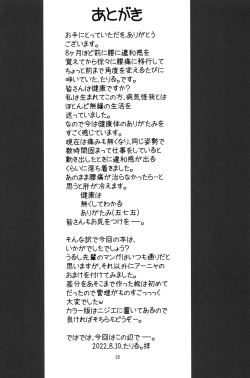 あとがき
お手にとっていただき、ありがとう
ございます。
8ヶ月ほど前に腰に違和感を
覚えてから徐々に腰痛に移行して
ちょっと前まで角度を変えるたびに
呻いていた、たりる。です。
皆さんは健康ですか?
私は生まれてこの方、病気怪我とは
ほとんど無縁の生活を
送っていました。
なので今は健康体のありがたみを
すごく感じています。
現在は痛みも無くなり、同じ姿勢で
数時間固まって仕事をしている
とたまにさっきに違和感が出る
くらいに落ち着きました。
あのまま腰痛が治らなかったら…と
思うと肝が冷えます。
健康は
無くしてわかる
ありがたみ(五七五)
皆さんもお気をつけを―。
そんな訳で今回の本は、
いかがでしたでしょう?
うるし先輩のマンガはいつも通りだと
思いますが、それ以外にアーニャの
おまけを付けてみました。
差分をあそこまで作った絵は初めて
だったので管理がものすごっっっく
大変でしたw
カラー版はニジエに置いてあるので
良ければそちらもどうぞー。
ではでは、今回はこの辺で―。
2022.8.10.たりる。拝
22